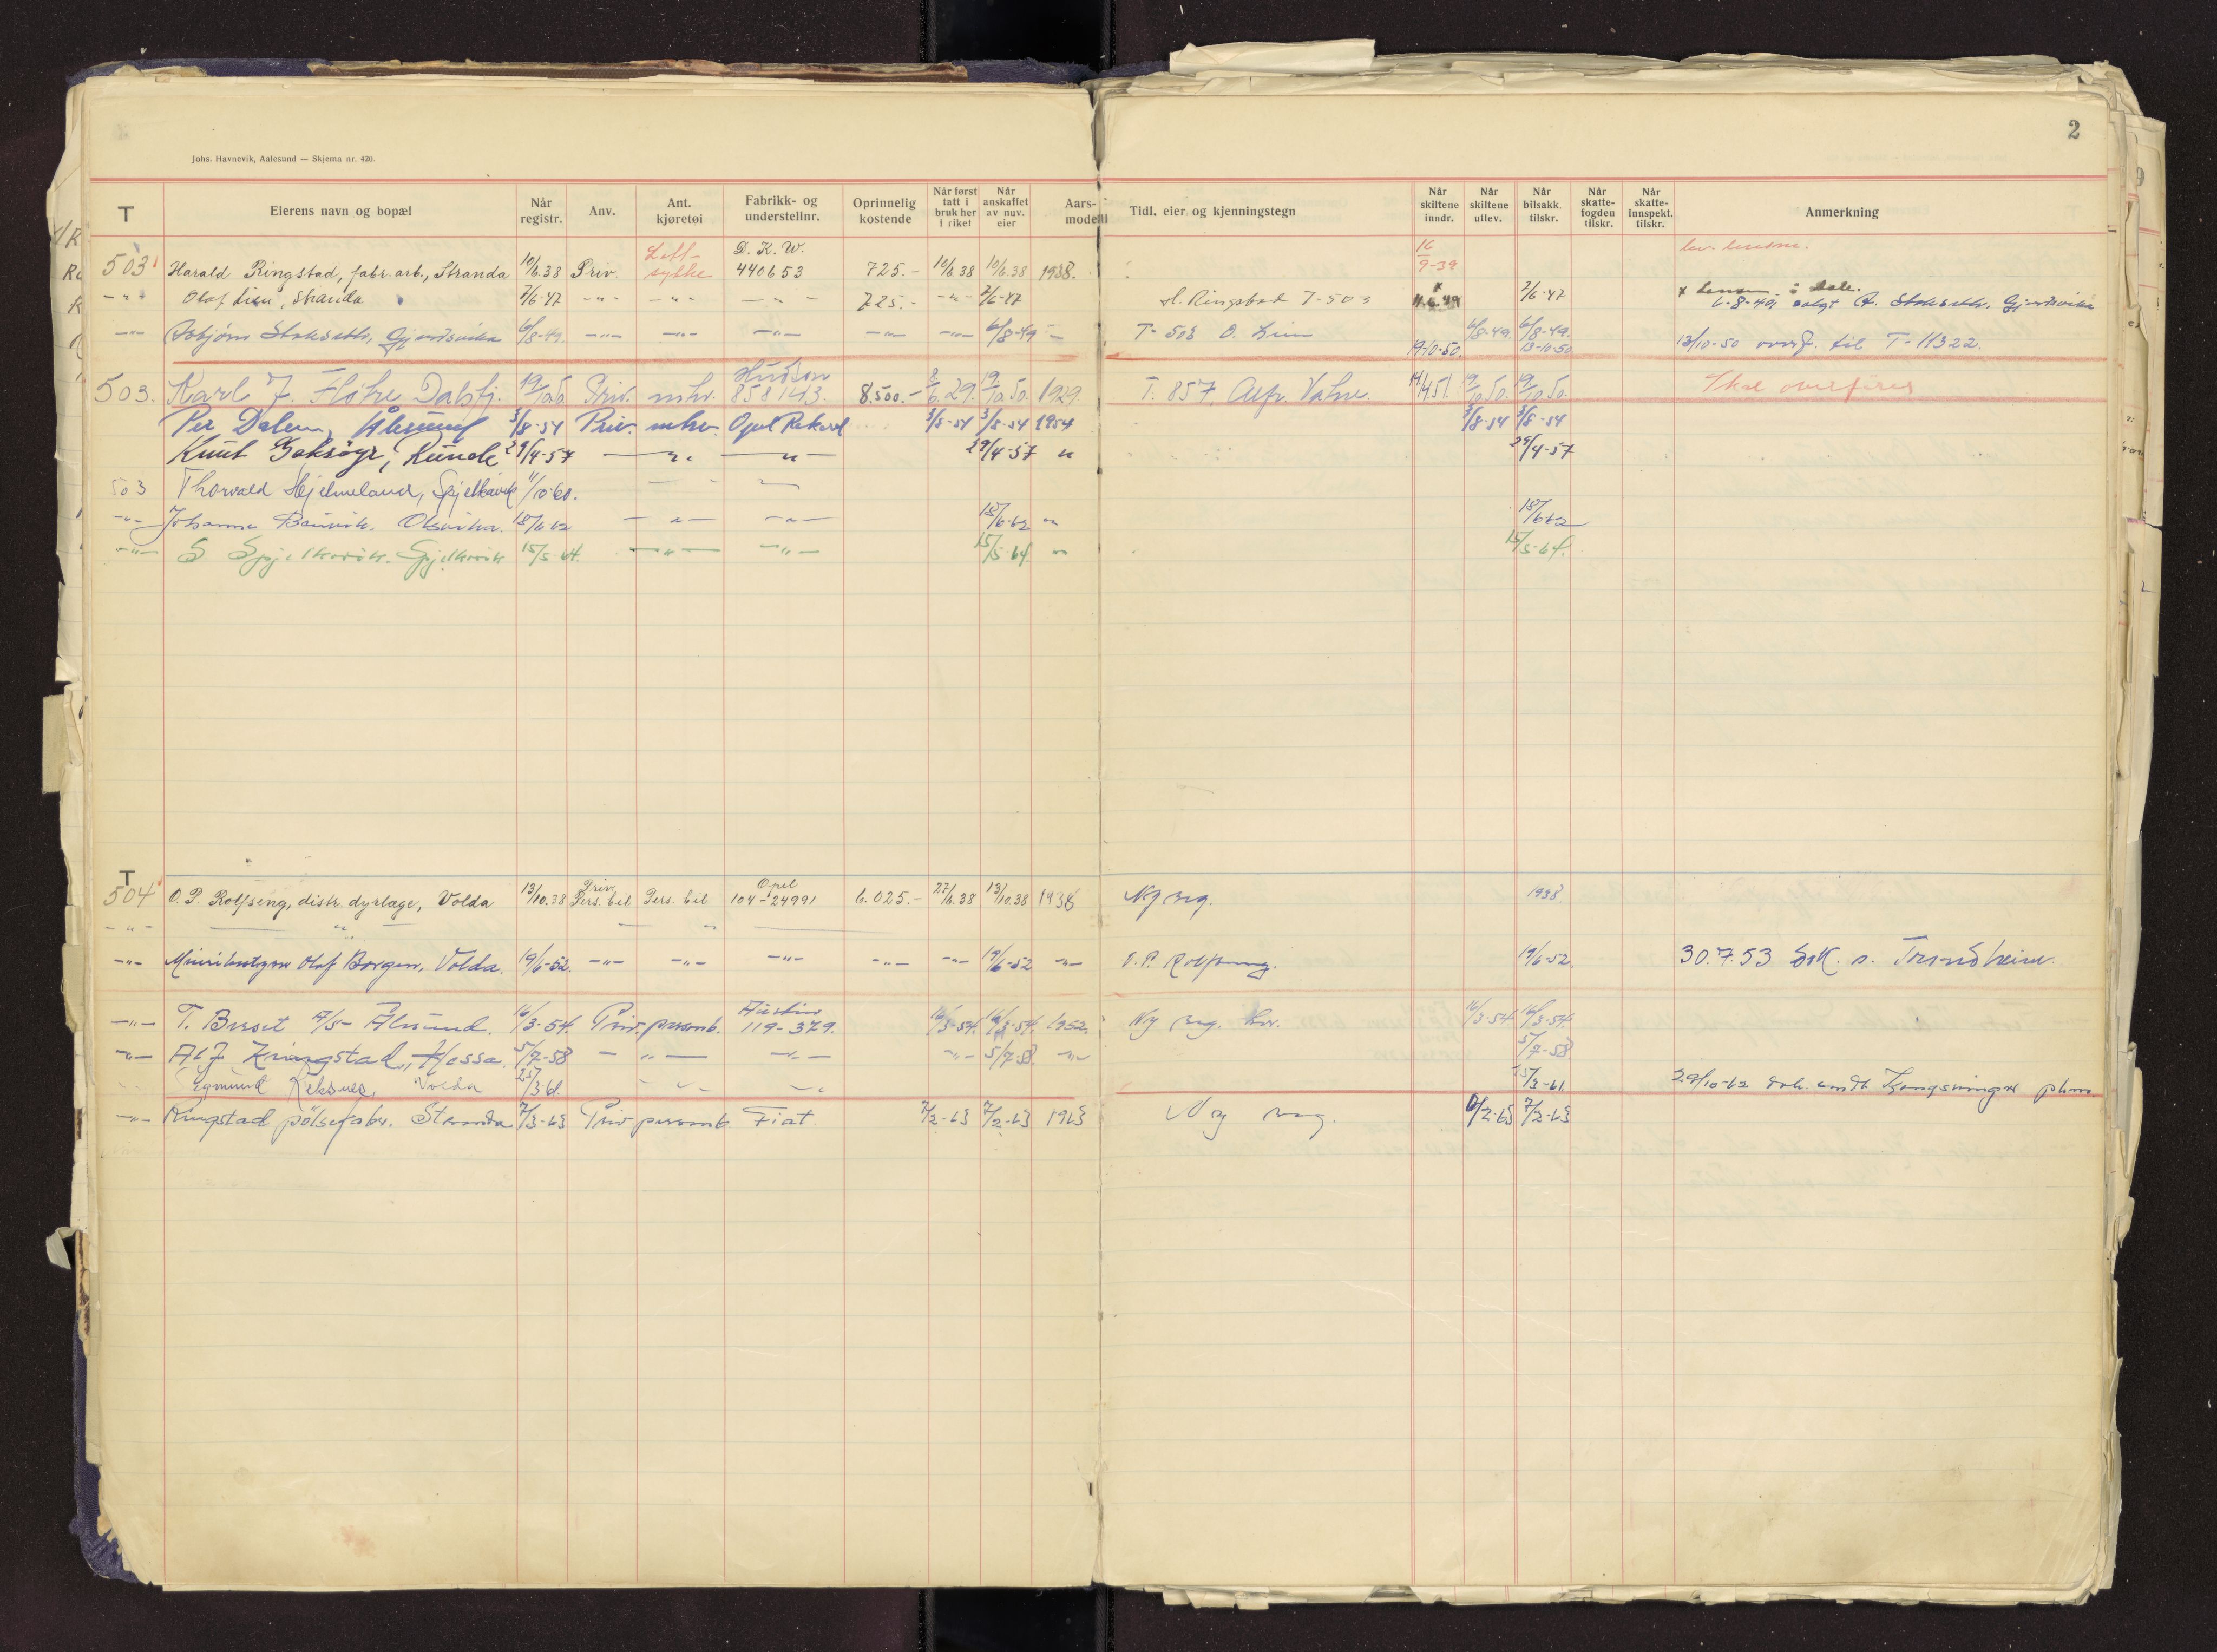 2
Johs. Havnevik, Aalesund — Skjema nr. 420.
T Eierens navn og bopæl Når registr. Anv. Ant. kjøretøi Fabrikk- og understellnr. Oprinnelig kostende Når først tatt i bruk her i riket Når anskaffet av nuv. eier Aars-modell Tidl. eier og kjenningstegn Når skiltene inndr. Når skiltene utlev. Når bilsakk. tilskr. Når skatte-fogden tilskr. Når skatte-innspekt. tilskr. Anmerkning
Lett- D. K. W. 16
503 Harald Ringstad, fabr. arb., Stranda 10/6.38 Priv. sykke 440653 725.- 10/6.38 10/6.38 1938. 9-39
-"- Olaf Lien, Stranda 7/6-47 -"- -"- -"- 725.- -"- 7/6-47 H. Ringstad T-503 11.6.49 7/6-47 6-8-49 solgt A. Stokseth, Gjerdsvika
-"- Asbjørn Stokseth, Gjerdsvika 6/8-49. -"- -"- -"- -"- -"- 6/8-49 - T-503 O. Lien 19-10-50. 6/8-49. 6/8-49. 13-10-50 13/10-50 overf. til T-11322.
Hudson
503. Karl J. Fløtre Dalsfj. 19/10 50 Priv. mhr. 858143. 8.500.- 8/6.29. 19/10 50. 1929. T. 857. Alfr. Vatne. 14/4 51. 19/10 50. 19/10 50. Skal overføres
Per Dalen, Ålesund 3/8-54 Priv. mhr. Opel Rekord 3/8-54 3/8-54 1954 3/8-54 3/8-54
Knut Goksöyr, Runde 29/4-57 -"- -"- 29/4-57 " 29/4-57
503 Thorvald Hjelmeland, Spjelkavik 11/10-60.
-"- Johanne Olsvika. 18/6-62 -"- -"- 18/6-62 " 18/6-62
-"- S Spjelkavik. Spjelkavik 15/5-64. -"- -"- 15/5-64 " 15/5-64.
T
Priv. Opel
504 O. P. Rolfseng, distr. dyrlæge, Volda 13/10.38 Pers. bil Pers. bil 104-24991 6.025.- 27/6.38 13/10.38 1938 Ny reg. 1938.
-"- "
-"- Olaf Borgen, Volda. 19/6-52. -"- -"- -"- -"- -"- 19/6-52 -"- O.P. Rolfseng. 19/6-52. 30.7.53 Trondheim.
Austin
-"- T. Busset A/S Ålesund. 16/3-54. Priv. personb. 119-379. 16/3-54. 16/3-54. 1952. Ny reg. 16/3-54 16/3-54.
-"- Alf Kringstad, Hessa. 5/7-58 -"- -"- -"- 5/7-58. -"- 5/7-58
Reksnes, Volda 25/3-61. 29/10-62 Kongsvinger
-"- Ringstad pölsefabr. Stranda 7/3-63 Priv personb. Fiat 7/2-63 7/2-63 1963 Ny reg. 6/2-63 7/2-63